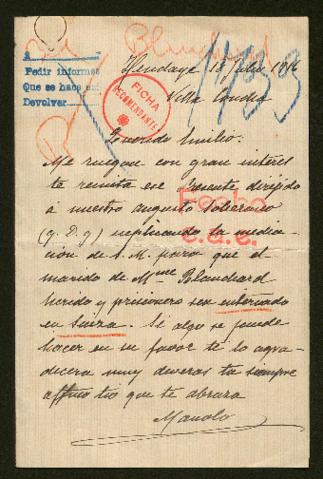 Blanchard
A
Pedir informes
Que se hace
Devolver
11739
Hendaye 18 julio 1916
Villa
FICHA
RECOMENDANTE
Querido Emilio:
Me ruegan con gran interés
te remita ese Presente dirijido
a nuestro augusto soberano
(q. D. g) suplicando la media-
cion de S. M. para que el
marido de Mme Blanchard
herido y prisionero sea internado
en Suiza. Si algo se puede
hacer en su favor te lo agra-
decera muy deveras tu siempre
affmo tio que te abraza
Manolo
Fecho
c.a.e.